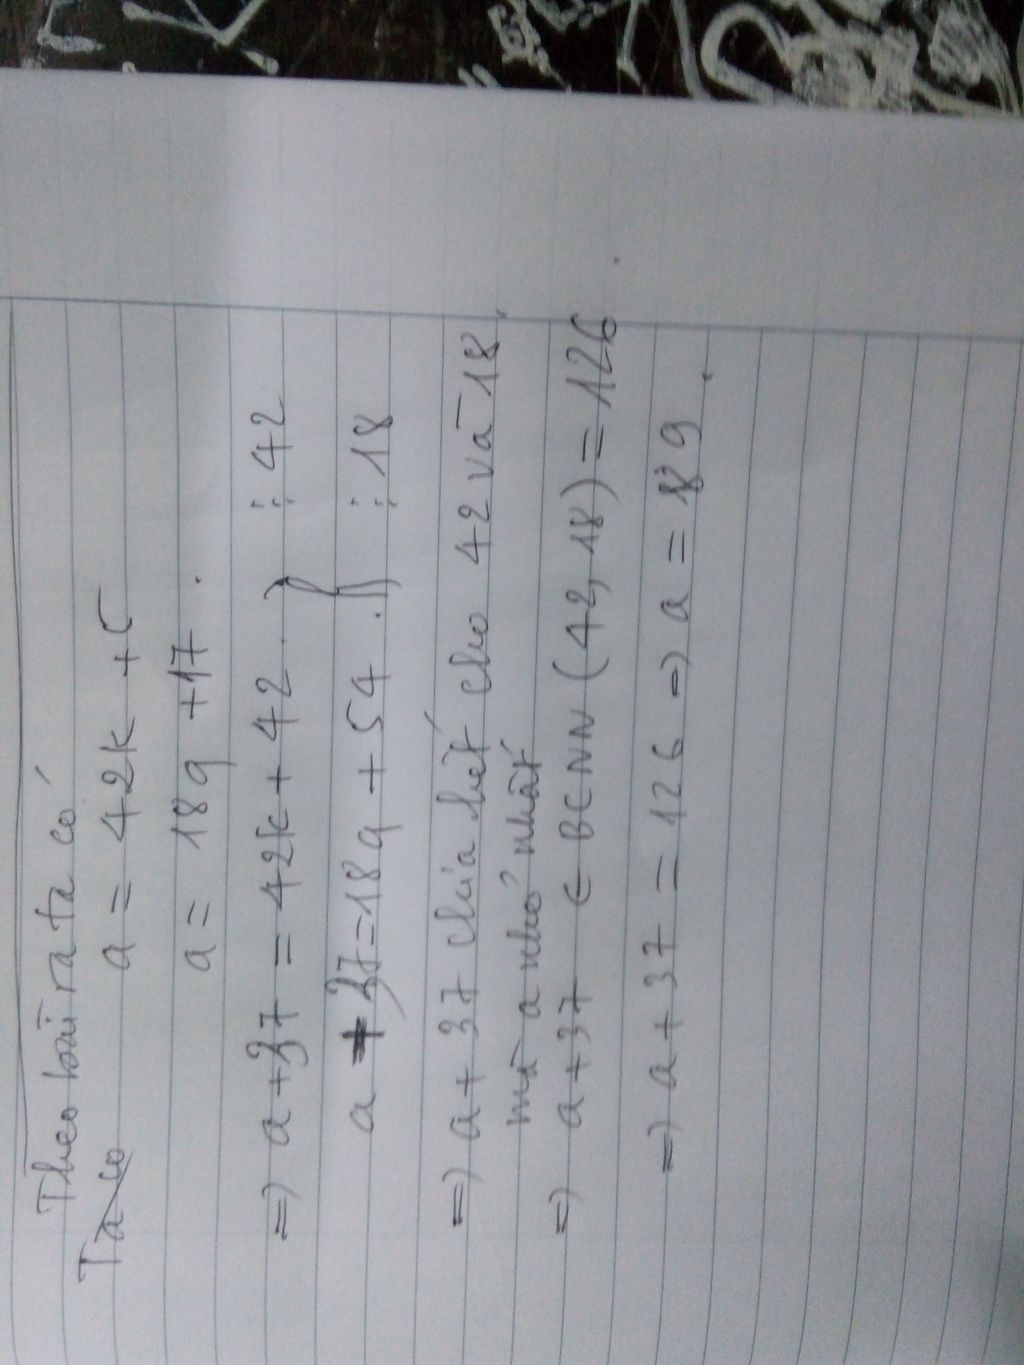 Theo bài ra ta có
Ta có
a = 42k + 5
a = 18q + 17.
=> a + 37 = 42k + 42 ⋮ 42
a + 37 = 18q + 54 ⋮ 18
=> a + 37 chia hết cho 42 và 18,
mà a nhỏ nhất
=> a + 37 ∈ BCNN (42, 18) = 126
=> a + 37 = 126 => a = 89.